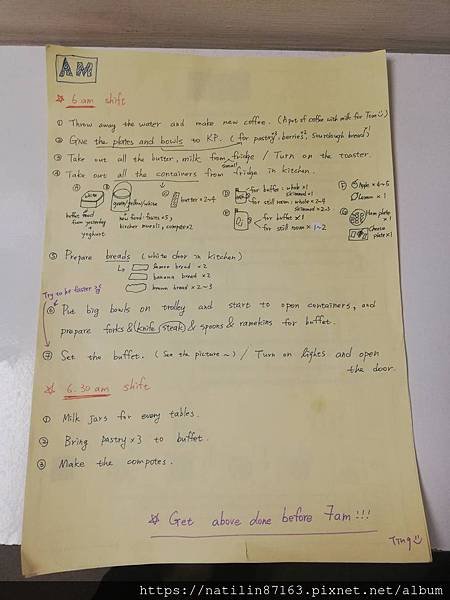 AM
☆ 6 am shift
① Throw away the water and make new coffee. (A pot of coffee with milk for Tom ☺)
② Give the plates and bowls to KP. (for pastry, berries, sourdough bread)
③ Take out all the butter, milk from fridge / Turn on the toaster.
small
④ Take out all the containers from fridge in kitchen.
Ⓐ white
buffet food from yesterday + yoghurt
Ⓑ green/yellow/white
new food: fruits ×5,
bircher muesli, compote×2
Ⓒ butter × 2~4
Ⓓ for buffet: whole ×1
skimmed ×1
for still room: whole × 2~4
skimmed × 2~3
Ⓔ for buffet ×1
for still room × 1~2
Ⓕ Apple × 4~5
Lemon × 1
Ⓖ Ham plate ×1
Cheese plate ×1
⑤ Prepare breads (white choc in kitchen)
lemon bread × 2
banana bread × 2
brown bread × 2~3
Try to be faster
⑥ Put big bowls on trolley and start to open containers, and
prepare forks & knife (steak) & spoons & ramekins for buffet.
⑦ Set the buffet. (See the picture ~) / Turn on lights and open
the door.
☆ 6.30 am shift
① Milk jars for every tables.
② Bring pastry × 3 to buffet.
③ Make the compotes.
☆ Get above done before 7am!!!
Ting ☺
https://natilin87163.pixnet.net/album